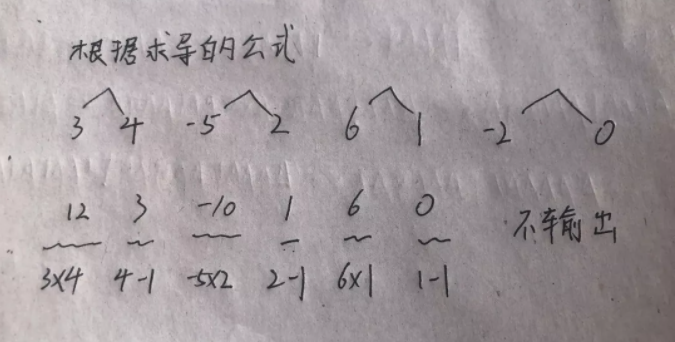 根据求导的公式
3 4 -5 2 6 1 -2 0
12 3 -10 1 6 0 不输出
3×4 4-1 -5×2 2-1 6×1 1-1